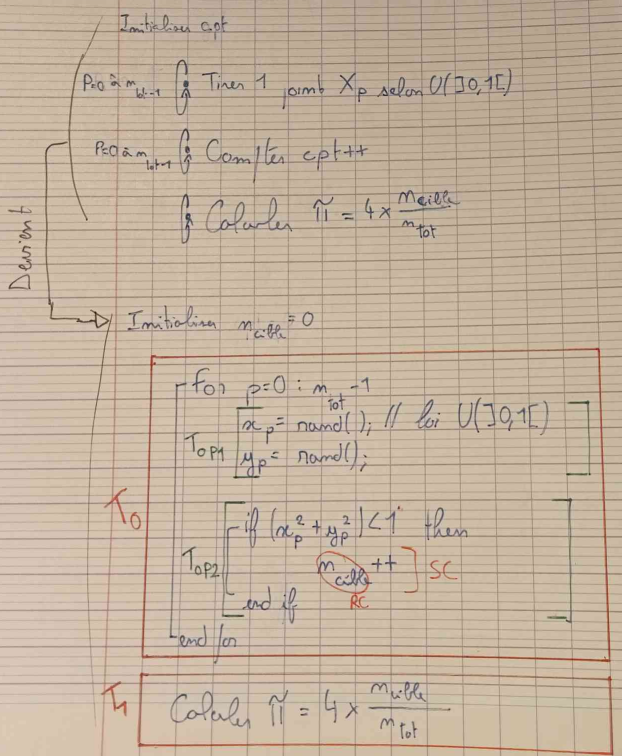 Initialiser cpt
P=0 à n_tot-1 Tirer 1 point X_p selon U(]0,1[)
P=0 à n_tot-1 Compter cpt++
Calculer π̃ = 4 × n_cible / n_tot
Devient
Initialiser n_cible = 0
for p=0 : n_tot -1
T_OP1 x_p = rand(); // loi U(]0,1[)
y_p = rand();
T_0
if (x_p² + y_p²) < 1 then
T_OP2 n_cible ++ ] SC
RC
end if
end for
T_1 Calculer π̃ = 4 × n_cible / n_tot